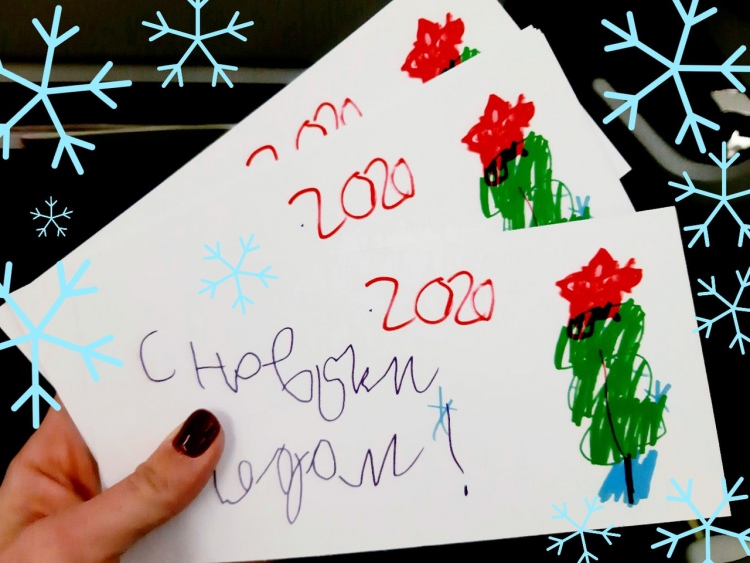 2020
2020
С новым
годом!